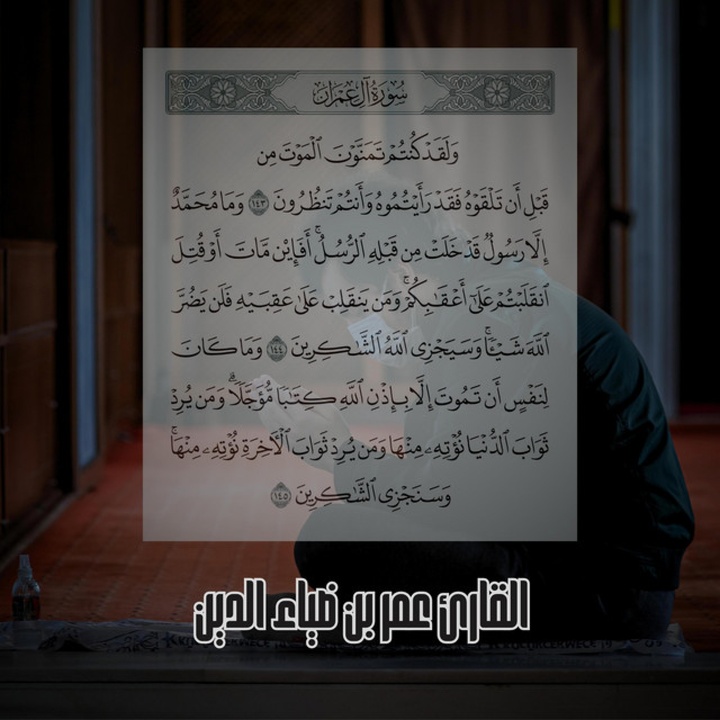 سُورَةُ آلِ عِمْرَان
وَلَقَدْ كُنتُمْ تَمَنَّوْنَ ٱلْمَوْتَ مِن
قَبْلِ أَن تَلْقَوْهُ فَقَدْ رَأَيْتُمُوهُ وَأَنتُمْ تَنظُرُونَ ١٤٣ وَمَا مُحَمَّدٌ
إِلَّا رَسُولٌ قَدْ خَلَتْ مِن قَبْلِهِ ٱلرُّسُلُ ۚ أَفَإِيْن مَّاتَ أَوْ قُتِلَ
ٱنقَلَبْتُمْ عَلَىٰٓ أَعْقَـٰبِكُمْ ۚ وَمَن يَنقَلِبْ عَلَىٰ عَقِبَيْهِ فَلَن يَضُرَّ
ٱللَّهَ شَيْـًٔا ۗ وَسَيَجْزِى ٱللَّهُ ٱلشَّـٰكِرِينَ ١٤٤ وَمَا كَانَ
لِنَفْسٍ أَن تَمُوتَ إِلَّا بِإِذْنِ ٱللَّهِ كِتَـٰبًا مُّؤَجَّلًا ۗ وَمَن يُرِدْ
ثَوَابَ ٱلدُّنْيَا نُؤْتِهِۦ مِنْهَا وَمَن يُرِدْ ثَوَابَ ٱلْـَٔاخِرَةِ نُؤْتِهِۦ مِنْهَا ۚ
وَسَنَجْزِى ٱلشَّـٰكِرِينَ ١٤٥
القارئ عمر بن ضياء الدين